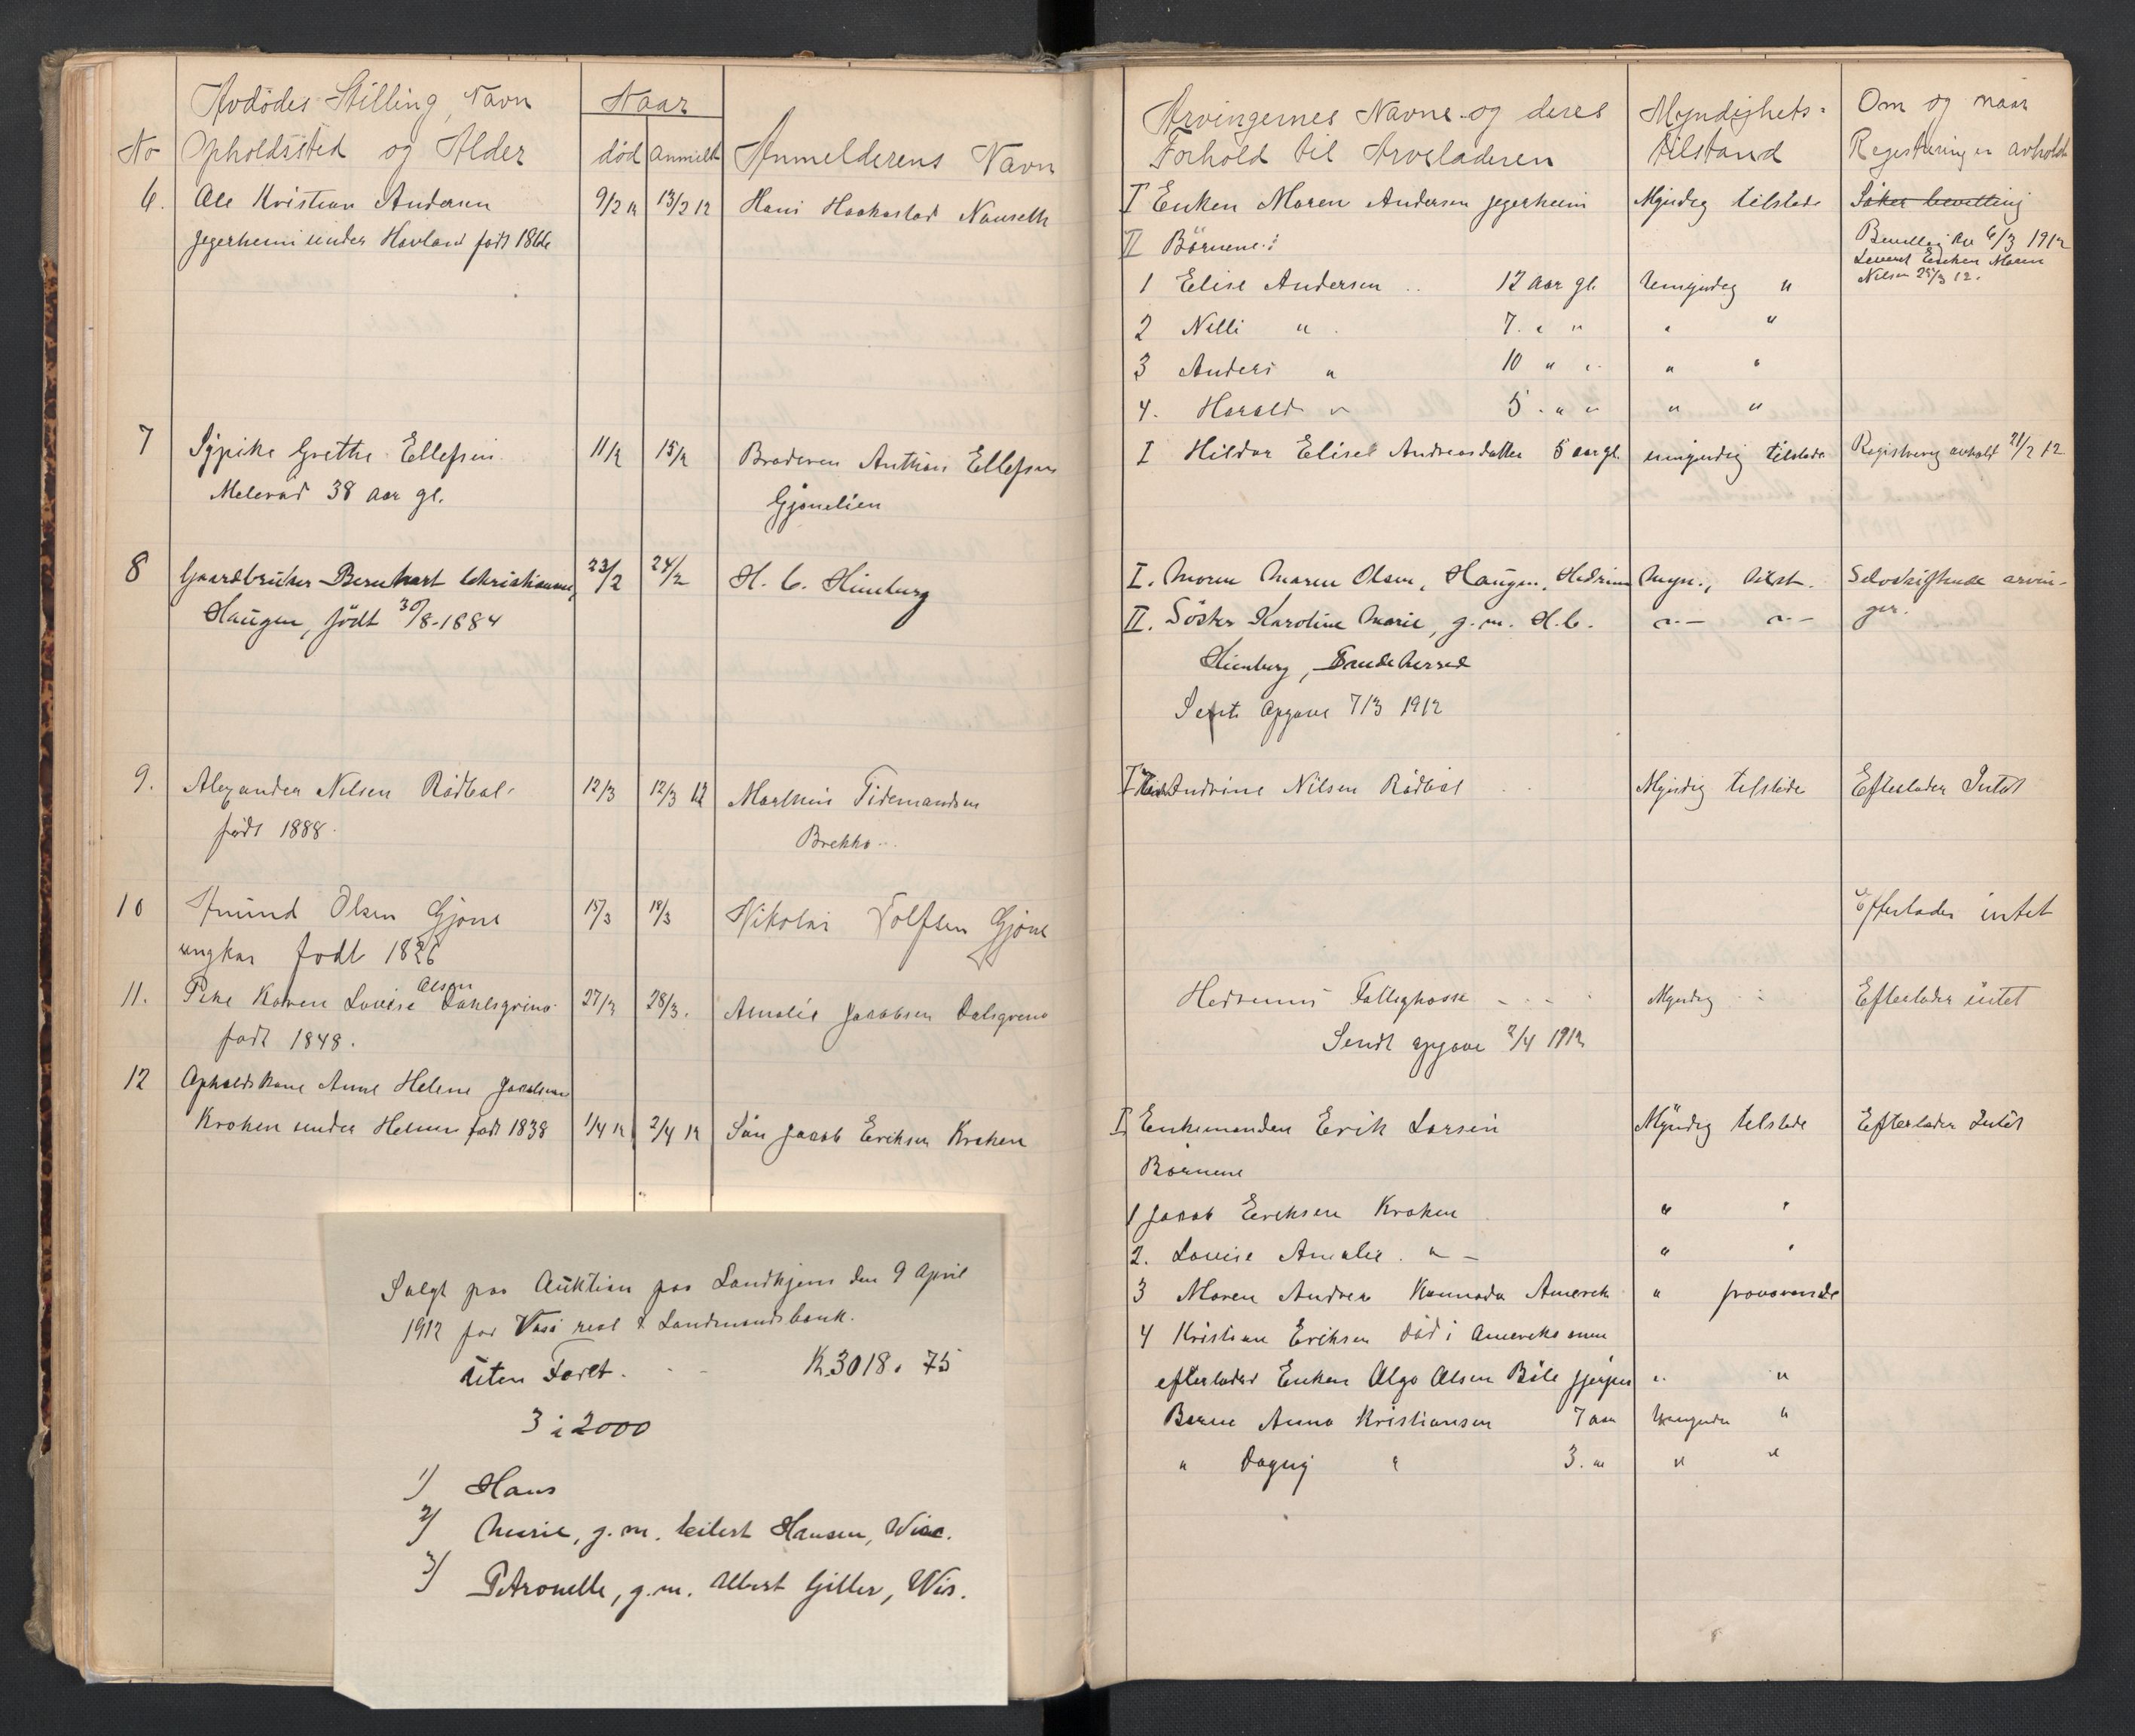 Avdödes Stilling, Navn
No Opholdssted og Alder
Naar
död anmeldt
Anmelderens Navn
6. Ole Kristian Andersen 9/2 12 13/2 12 Hans Haakestad Nanseth
Jegerheim under Havland født 1866
7 Sypike Grethe Ellefsen 11/2 15/2 Broderen Anthon Ellefsen
Melerad 38 aar gl. Gjønelien
8 Gaardbruker Bernhart Christiansen, 23/2 24/2 H. C. Himberg
Haugen, født 30/8-1884
9. Alexander Nilsen Rödbøl 12/3 12/3 12 Marthin Tidemandsen
født 1888. Brekke
10 Amund Olsen Gjøne 15/3 18/3 Nikolai Rolfsen Gjöne
ungkar født 1826
11. Pike Karen Lovise Olsen Dahlsgrina 27/3 28/3. Amalie Jacobsen Dalsgrena
født 1848.
12 Opholdskone Anne Helene Jacobsen
Kroken under Heum født 1838 1/4 12 2/4 12 Sön Jacob Eriksen Kroken
Solgt paa Auktion paa Landhjem den 9 April
1912 for Vasi real & Landmandsbank.
uten Foret. K. 3018. 75
3 i 2000
1) Hans
2) Marie, g. m. Eilert Hansen, Wisc.
3) Petronelle, g. m. Albert Giller, Wis.
Arvingernes Navne og deres
Forhold til Arveladeren
Myndighets-
tilstand
Om og naar
Registrering er avholdt
I Enken Maren Andersen Jegerheim Myndig tilstede Söker bevilling
II Börnene: Bevilling av 6/3 1912
Leveret Enken Maren
1 Elise Andersen .. 12 aar gl. Umyndig " Nilsen 25/3 12.
2 Nilli " . 7. " " " "
3 Anders " 10 " " " "
4. Harald " 5. " " " "
I Hildar Elise Andreasdatter 5 aar gl. umyndig tilstede Registrering avholdt 21/2 12
I. Moren Maren Olsen, Haugen, Hedrum Myn., tilst. Selvskiftende arvin-
II. Söster Karoline Marie, g. m. H. C. -"- -"- ger.
Himberg, Sandeherred
Sent Opgave 7/3 1912
I Andrine Nilsen Rödbøl Myndig tilstede Efterlader Intet
Efterlader intet
Hedrums Fattigkasse - . - . Myndig Efterlader intet
Sendt opgave 2/4 1912
I Enkemanden Erik Larsen Myndig tilstede Efterlader Intet
Börnene
1 Jacob Eriksen Kroken " "
2. Lovise Amalie . " - " "
3 Maren Andrea Kannada Amerek " fraværende
4 Kristian Eriksen död i Amereka men
efterlader Enken Olga Olsen Böle Gjerpen " "
Barne Anna Kristiansen 7 aar Umyndig "
" Dagny " 3. " " "